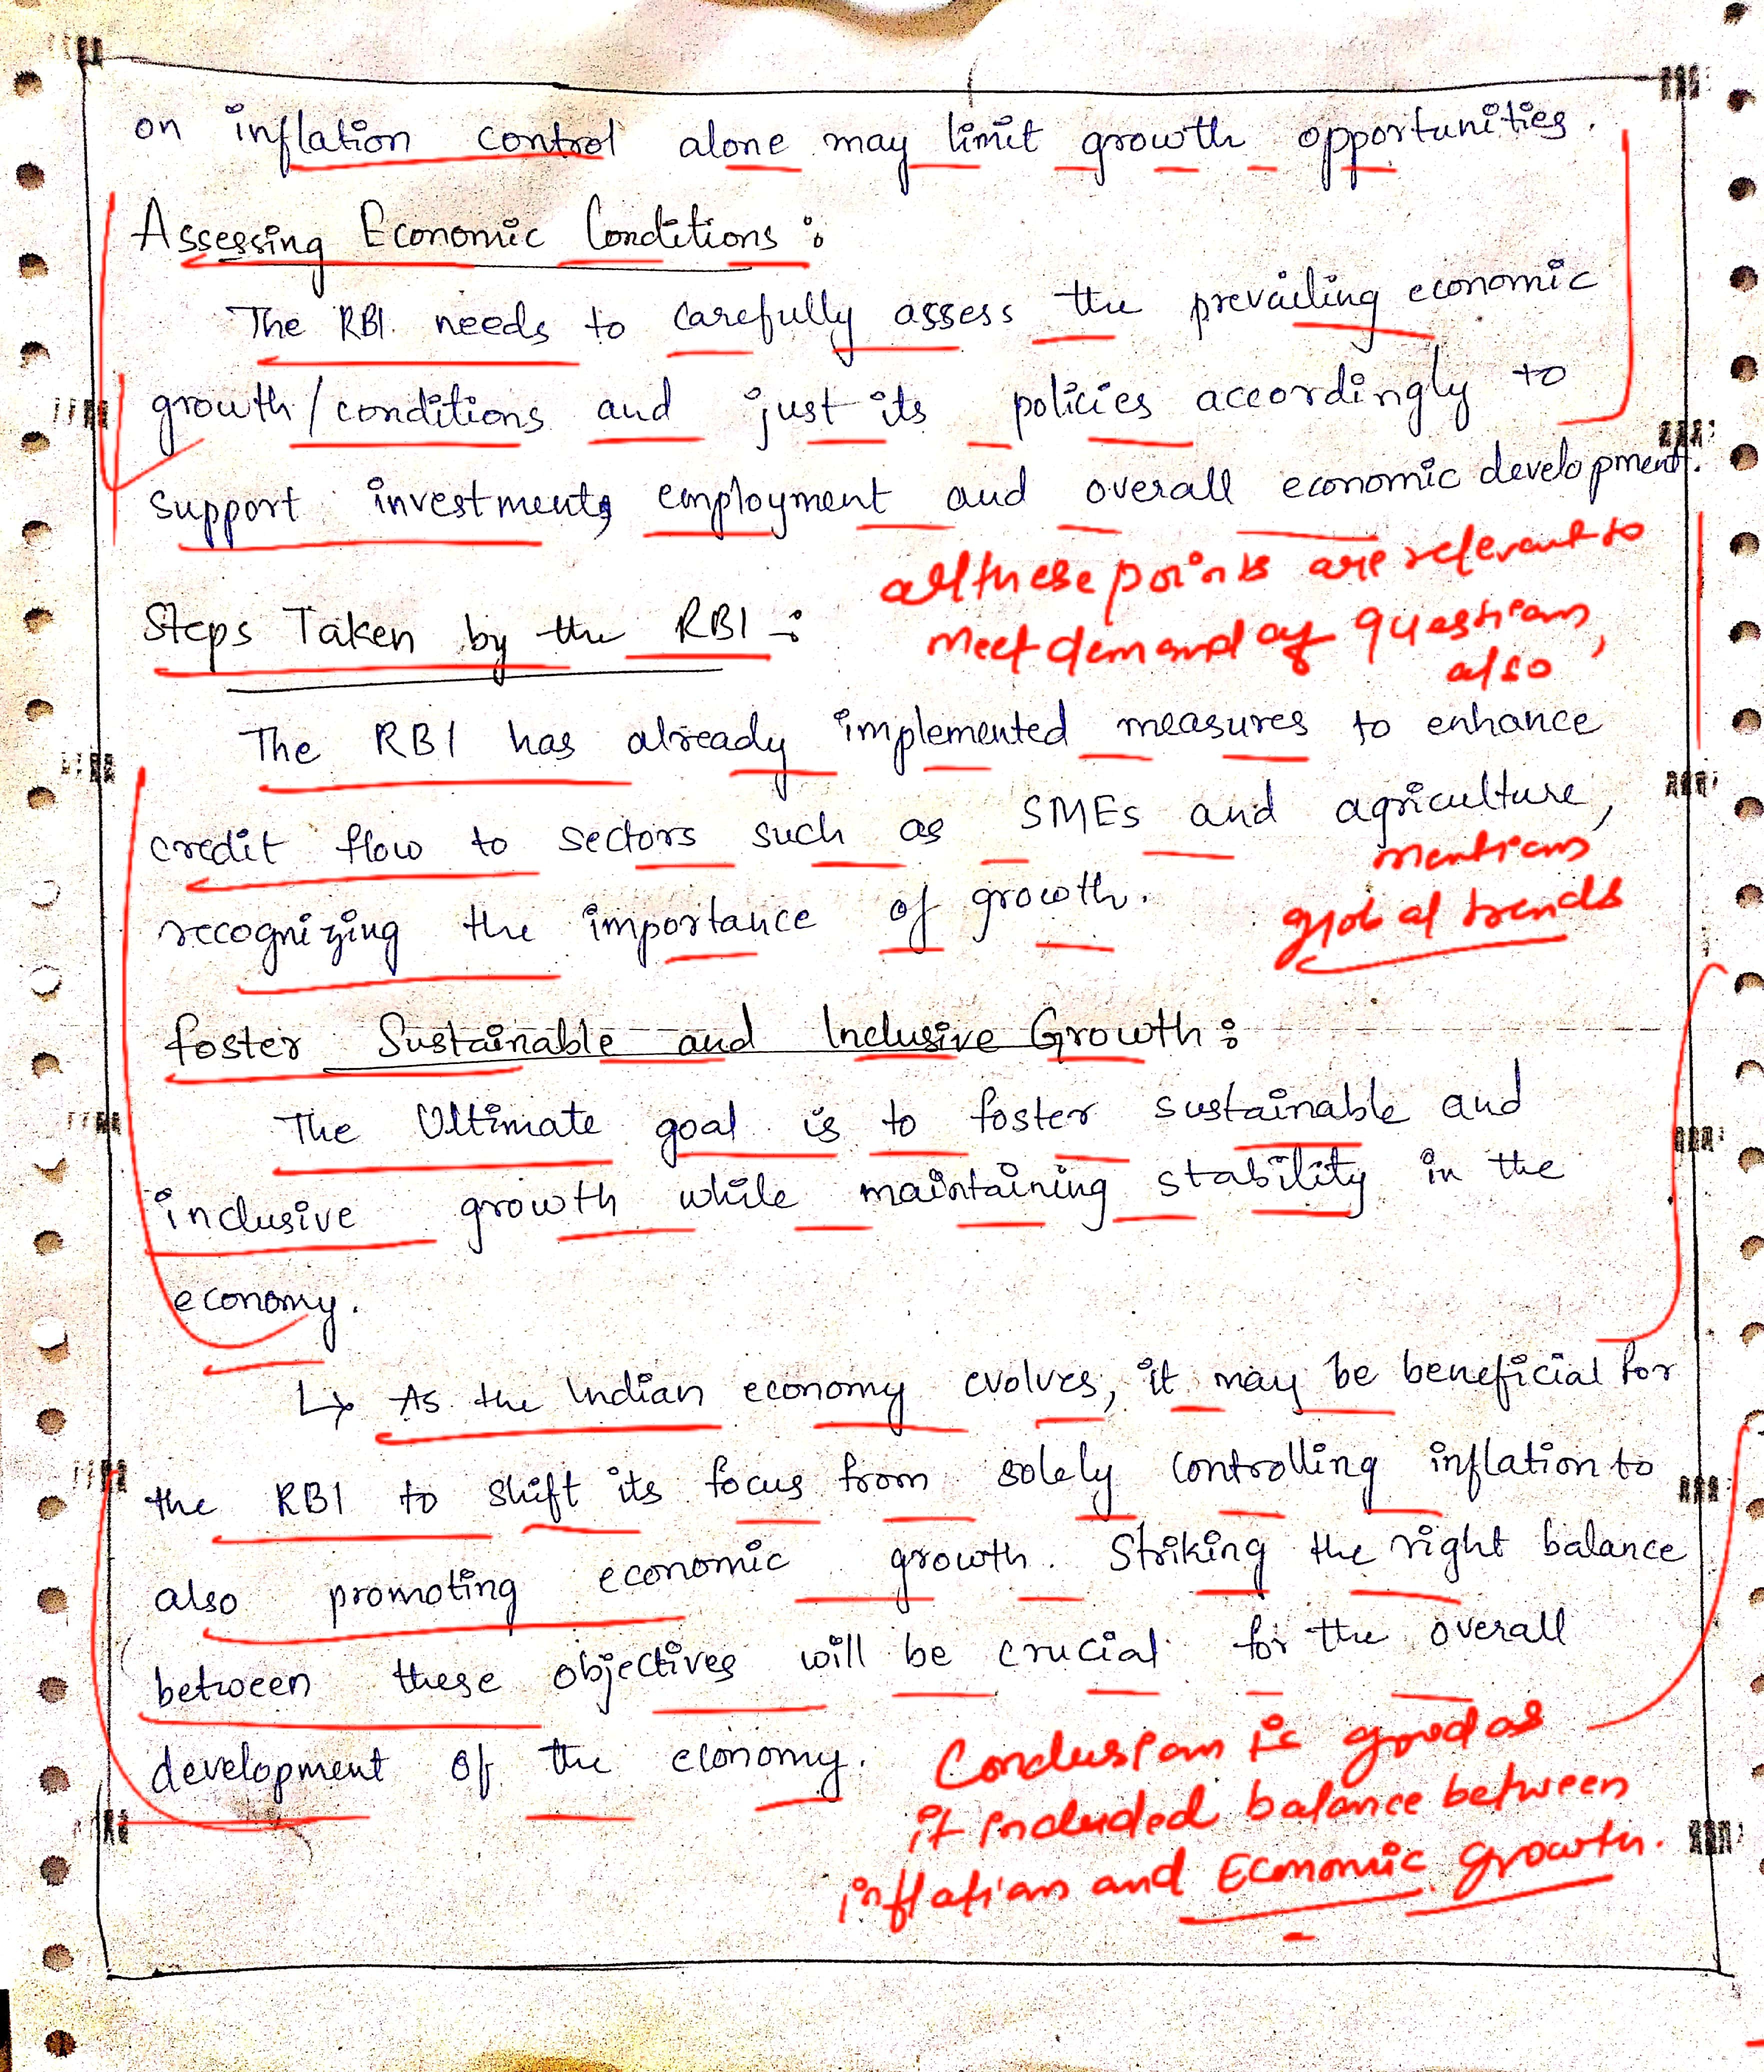 on inflation control alone may limit growth opportunities.
Assessing Economic Conditions :
The RBI. needs to carefully assess the prevailing economic
growth/conditions and just its policies accordingly to
support investments employment and overall economic development.
all these points are relevant to
meet demand of questions,
also
Steps Taken by the RBI :
The RBI has already implemented measures to enhance
credit flow to sectors such as SMEs and agriculture,
mentions
global trends
recognizing the importance of growth.
foster Sustainable and Inclusive Growth :
The Ultimate goal is to foster sustainable and
inclusive growth while maintaining stability in the
economy.
↳ As the Indian economy evolves, it may be beneficial for
the RBI to shift its focus from solely controlling inflation to
also promoting economic growth. Striking the right balance
between these objectives will be crucial for the overall
development of the economy.
Conclusion is good as
it included balance between
inflation and Economic growth.